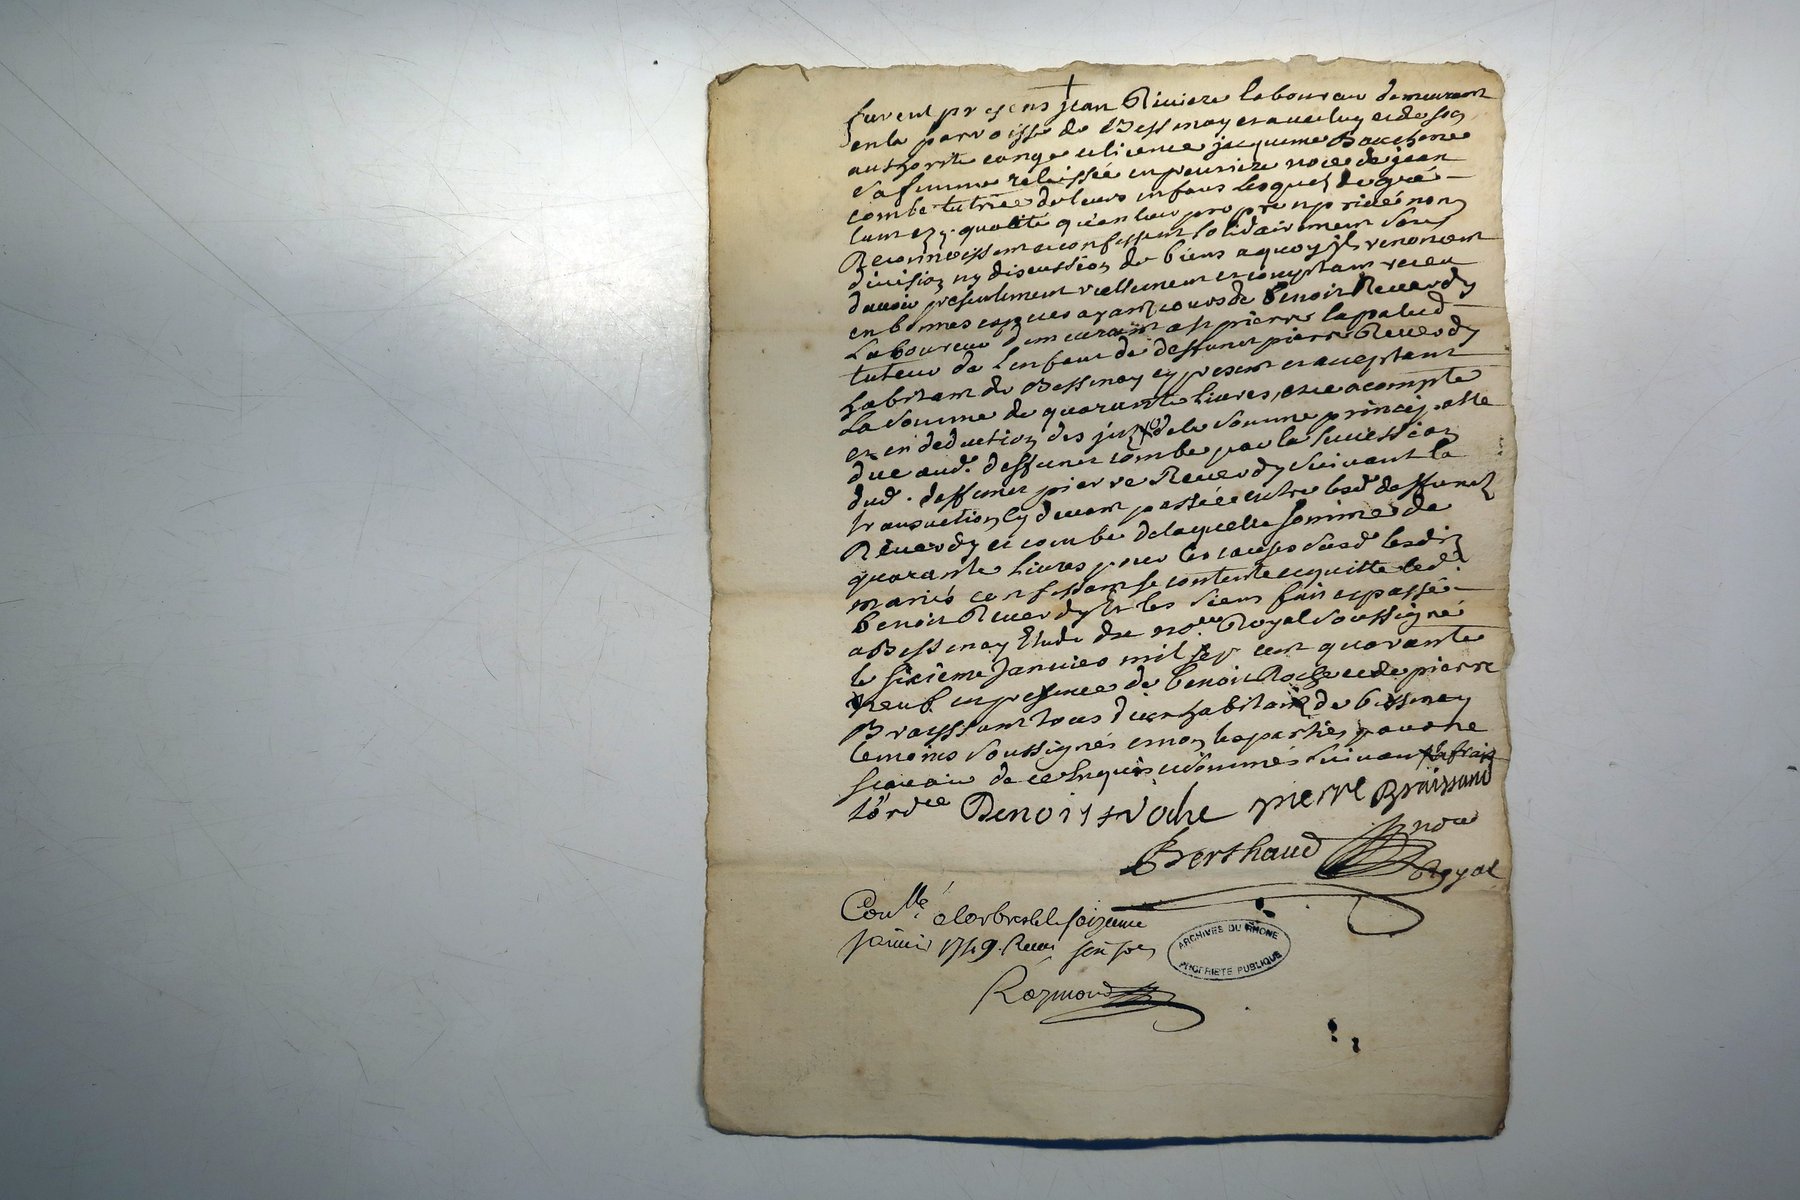 furent presens jean Riviere laboureur demeurant
en la parroisse de Bessenay et avec luy et de son
authorité congé et licence jacqueme
sa femme relaissée en premiere noce de jean
combe tutrice de leurs enfans lesquels de gré
tant ez. qualité qu'en leur propre np privé nom
Reconnoissent et confessent solidairement sans
division ny discussion de biens a quoy ils renoncent
d'avoir presentement reellement et comptant receu
en bonnes especes ayant cours de benoit Reverdy
Laboureur demeurant a st pierre lapalud
tuteur de lenfant de deffunct pierre Reverdy
habitant de Bessenay cy present et acceptant
La somme de quarante livres, et ce a compte
et en deduction des de la somme principalle
due aud. deffunct combe par la succession
dud. deffunct pierre Reverdy suivant la
transaction cy devant passée entre lesd deffuncts
Reverdy et combe de laquelle somme de
quarante Livres pour les causes susd lesdits
mariés confessant se contente et quitte led.
benoit Reverdy et les siens fait et passé
a Bessenay Etude du nore Royal soussigné
le sixieme Janvier mil sept cent quarante
neuf en presence de benoit Roche et de pierre
Brayssant tous deux habitans de bessenay
temoins soussignés et non les parties pour ne
scavoir de ce enquis et sommés suivant
l'ordce Benoist Roche pierre Braissand
Berthaud nore
Royal
Conllé a larbresle le seizieme
janvier 1749. Receu
Raymond
ARCHIVES DU RHONE
PROPRIETE PUBLIQUE